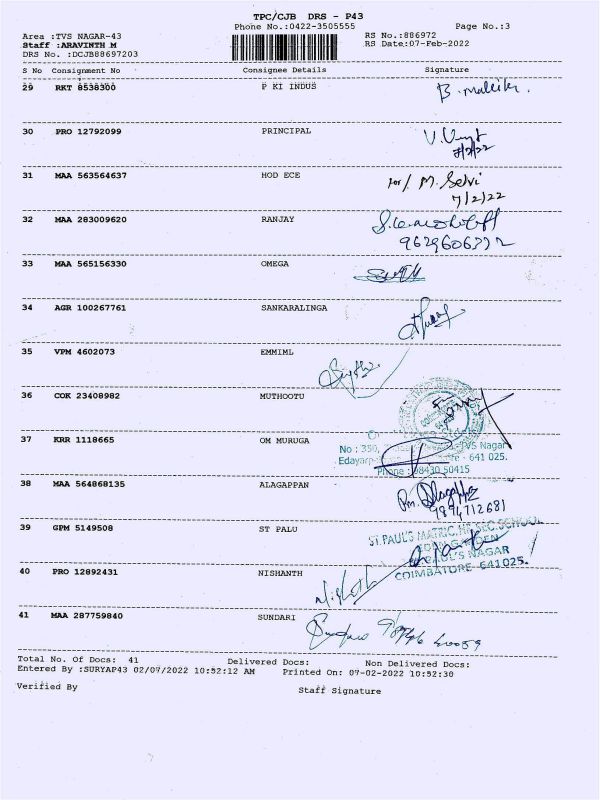 TPC/CJB DRS - P43
Phone No.:0422-3505555 Page No.:3
Area :TVS NAGAR-43 RS No.:886972
Staff :ARAVINTH M RS Date:07-Feb-2022
DRS No. :DCJB88697203
S No Consignment No Consignee Details Signature
29 RKT 8538300 P KI INDUS B. mallika
30 PRO 12792099 PRINCIPAL
31 MAA 563564637 HOD ECE for/ M. Selvi
7/2/22
32 MAA 283009620 RANJAY
33 MAA 565156330 OMEGA
34 AGR 100267761 SANKARALINGA
35 VPM 4602073 EMMIML
36 COK 23408982 MUTHOOTU
37 KRR 1118665 OM MURUGA
No : 350, TVS Nagar
641 025.
Phone : 98430 50415
38 MAA 564868135 ALAGAPPAN
9894712681
39 GPM 5149508 ST PALU
ST.PAUL'S MATRIC.HR.SEC.SCHOOL
PAUL'S NAGAR
COIMBATORE-641025.
40 PRO 12892431 NISHANTH Nishanth
41 MAA 287759840 SUNDARI
Total No. Of Docs: 41 Delivered Docs: Non Delivered Docs:
Entered By :SURYAP43 02/07/2022 10:52:12 AM Printed On: 07-02-2022 10:52:30
Verified By Staff Signature